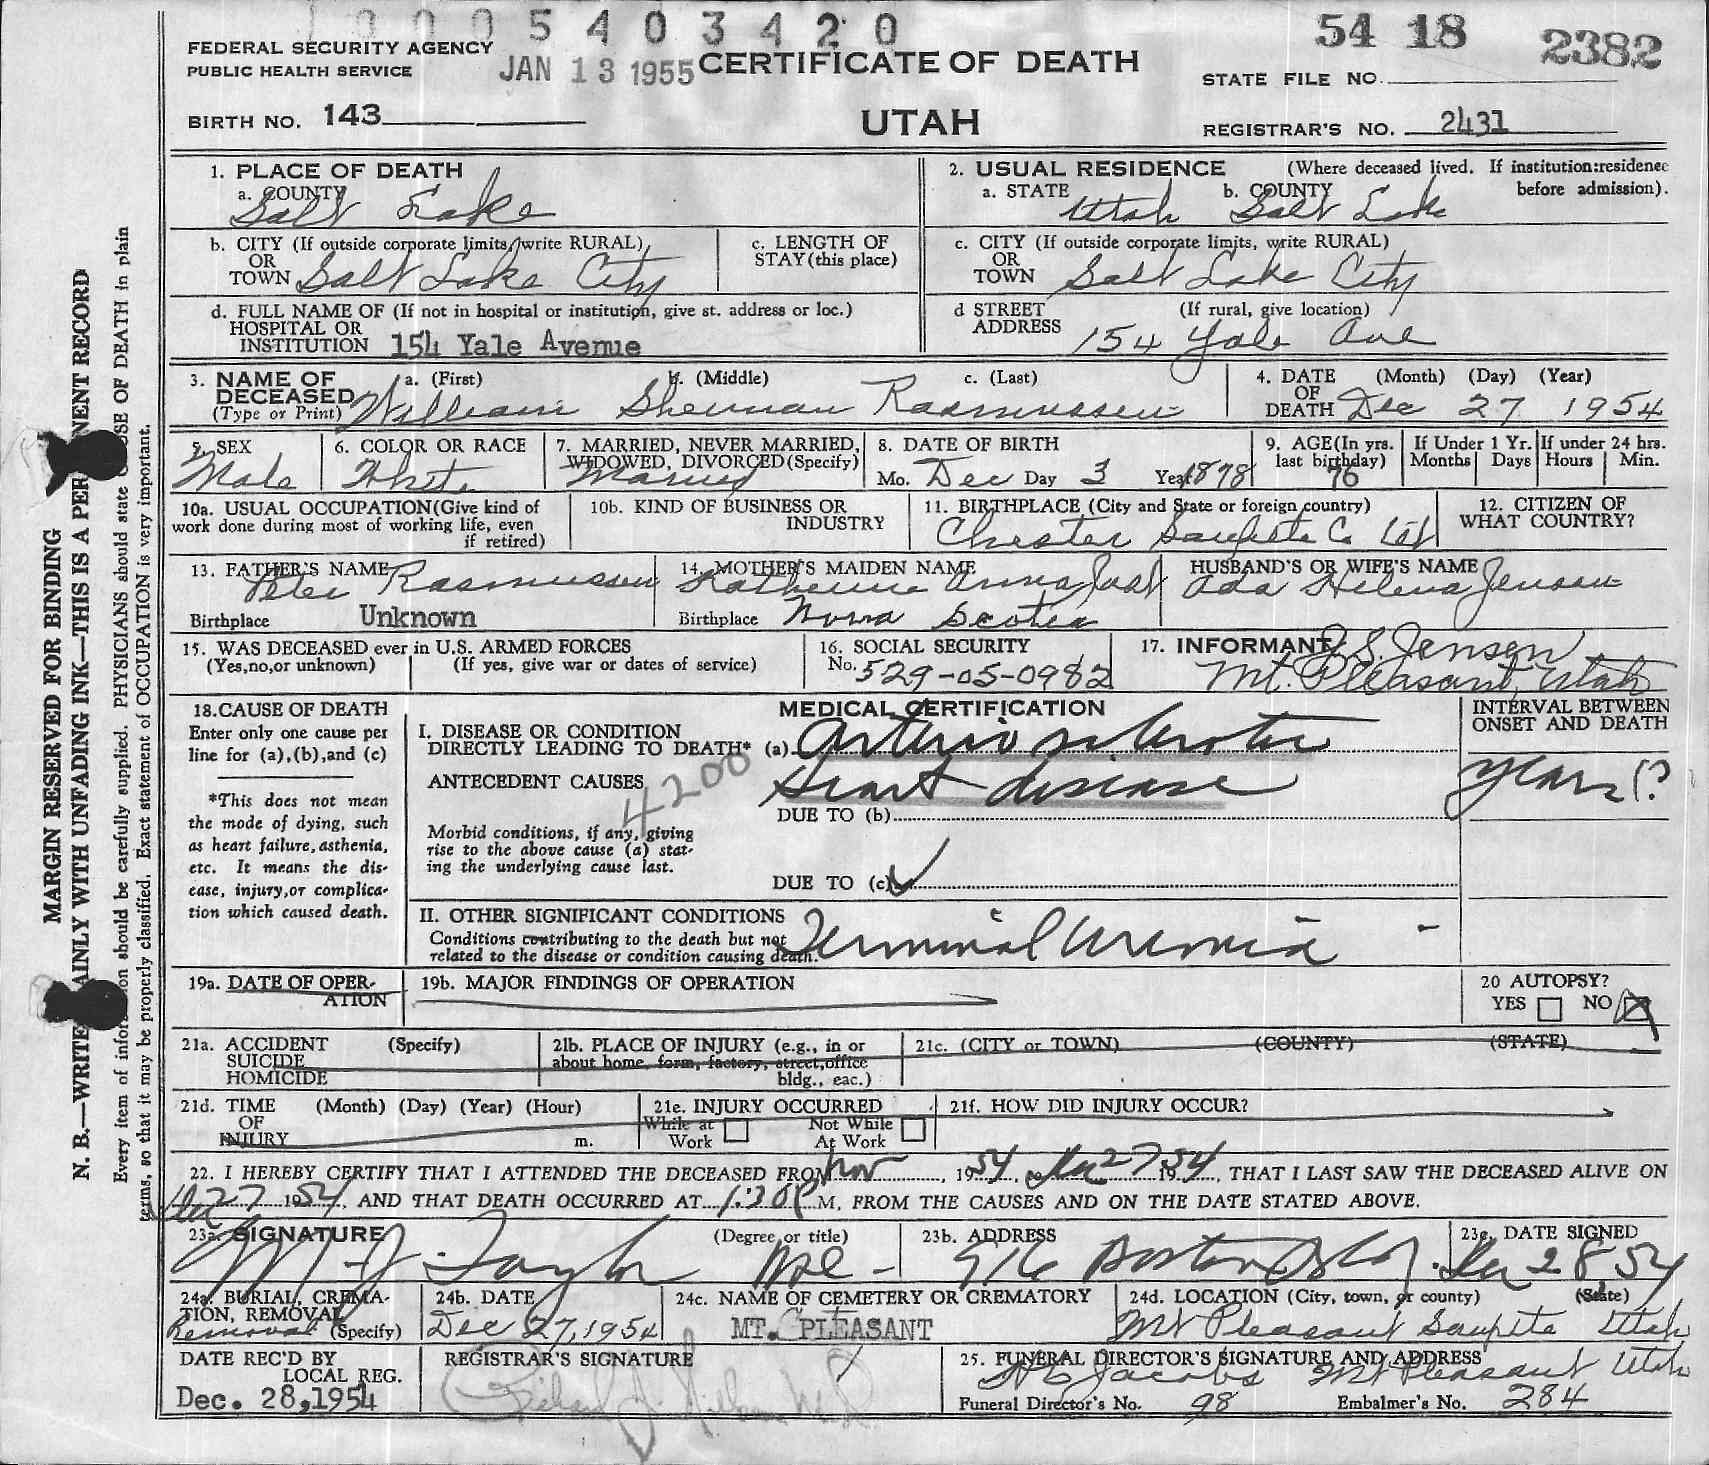 1 0 0 0 5 4 0 3 4 2 0
54 18 2382
FEDERAL SECURITY AGENCY
PUBLIC HEALTH SERVICE
JAN 13 1955
CERTIFICATE OF DEATH
STATE FILE NO.
BIRTH NO. 143
UTAH
REGISTRAR'S NO. 2431
MARGIN RESERVED FOR BINDING
N. B.—WRITE AINLY WITH UNFADING INK—THIS IS A PER NENT RECORD
Every item of infor on should be carefully supplied. PHYSICIANS should state SE OF DEATH in plain
terms, so that it may be properly classified. Exact statement of OCCUPATION is very important.
1. PLACE OF DEATH
a. COUNTY Salt Lake
2. USUAL RESIDENCE (Where deceased lived. If institution:residence before admission).
a. STATE Utah b. COUNTY Salt Lake
b. CITY (If outside corporate limits, write RURAL)
OR
TOWN Salt Lake City
c. LENGTH OF
STAY (this place)
c. CITY (If outside corporate limits, write RURAL)
OR
TOWN Salt Lake City
d. FULL NAME OF (If not in hospital or institution, give st. address or loc.)
HOSPITAL OR
INSTITUTION 154 Yale Avenue
d STREET (If rural, give location)
ADDRESS 154 Yale Ave
3. NAME OF DECEASED (Type or Print)
a. (First) b. (Middle) c. (Last)
William Sherman Rasmussen
4. DATE OF DEATH (Month) (Day) (Year)
Dec 27 1954
5. SEX
Male
6. COLOR OR RACE
White
7. MARRIED, NEVER MARRIED,
WIDOWED, DIVORCED (Specify)
Married
8. DATE OF BIRTH
Mo. Dec Day 3 Year 1878
9. AGE (In yrs. last birthday)
76
If Under 1 Yr.
Months Days
If under 24 hrs.
Hours Min.
10a. USUAL OCCUPATION (Give kind of
work done during most of working life, even
if retired)
10b. KIND OF BUSINESS OR
INDUSTRY
11. BIRTHPLACE (City and State or foreign country)
Chester Sanpete Co Ut
12. CITIZEN OF
WHAT COUNTRY?
13. FATHER'S NAME
Peter Rasmussen
Birthplace Unknown
14. MOTHER'S MAIDEN NAME
Katherine Anna Jost
Birthplace Nova Scotia
HUSBAND'S OR WIFE'S NAME
Ada Helena Jensen
15. WAS DECEASED ever in U.S. ARMED FORCES
(Yes, no, or unknown) (If yes, give war or dates of service)
16. SOCIAL SECURITY
No. 529-05-0982
17. INFORMANT
S. Jensen
Mt. Pleasant, Utah
18. CAUSE OF DEATH
Enter only one cause per
line for (a), (b), and (c)
*This does not mean
the mode of dying, such
as heart failure, asthenia,
etc. It means the dis-
ease, injury, or complica-
tion which caused death.
MEDICAL CERTIFICATION
I. DISEASE OR CONDITION
DIRECTLY LEADING TO DEATH* (a) Arteriosclerotic
Heart disease
4200
ANTECEDENT CAUSES
Morbid conditions, if any, giving
rise to the above cause (a) stat-
ing the underlying cause last.
DUE TO (b)
DUE TO (c)
INTERVAL BETWEEN
ONSET AND DEATH
years(?
II. OTHER SIGNIFICANT CONDITIONS
Conditions contributing to the death but not
related to the disease or condition causing death.
Terminal Uremia -
19a. DATE OF OPER-
ATION
19b. MAJOR FINDINGS OF OPERATION
20 AUTOPSY?
YES NO X
21a. ACCIDENT (Specify)
SUICIDE
HOMICIDE
21b. PLACE OF INJURY (e.g., in or
about home, form, factory, street, office
bldg., eac.)
21c. (CITY or TOWN) (COUNTY) (STATE)
21d. TIME (Month) (Day) (Year) (Hour)
OF
INJURY m.
21e. INJURY OCCURRED
While at Work Not While At Work
21f. HOW DID INJURY OCCUR?
22. I HEREBY CERTIFY THAT I ATTENDED THE DECEASED FROM Nov 1954, Dec 27 1954, THAT I LAST SAW THE DECEASED ALIVE ON
Dec 27 1954, AND THAT DEATH OCCURRED AT 1:30 P M, FROM THE CAUSES AND ON THE DATE STATED ABOVE.
23a. SIGNATURE (Degree or title)
M J Taylor MD -
23b. ADDRESS
916 Boston Bldg.
23c. DATE SIGNED
Dec 28, 54
24a. BURIAL, CREMA-
TION, REMOVAL
Removal (Specify)
24b. DATE
Dec 27, 1954
24c. NAME OF CEMETERY OR CREMATORY
MT. PLEASANT
24d. LOCATION (City, town, or county) (State)
Mt Pleasant Sanpete Utah
DATE REC'D BY
LOCAL REG.
Dec. 28, 1954
REGISTRAR'S SIGNATURE
25. FUNERAL DIRECTOR'S SIGNATURE AND ADDRESS
Jacobs Mt Pleasant Utah
Funeral Director's No. 98 Embalmer's No. 284